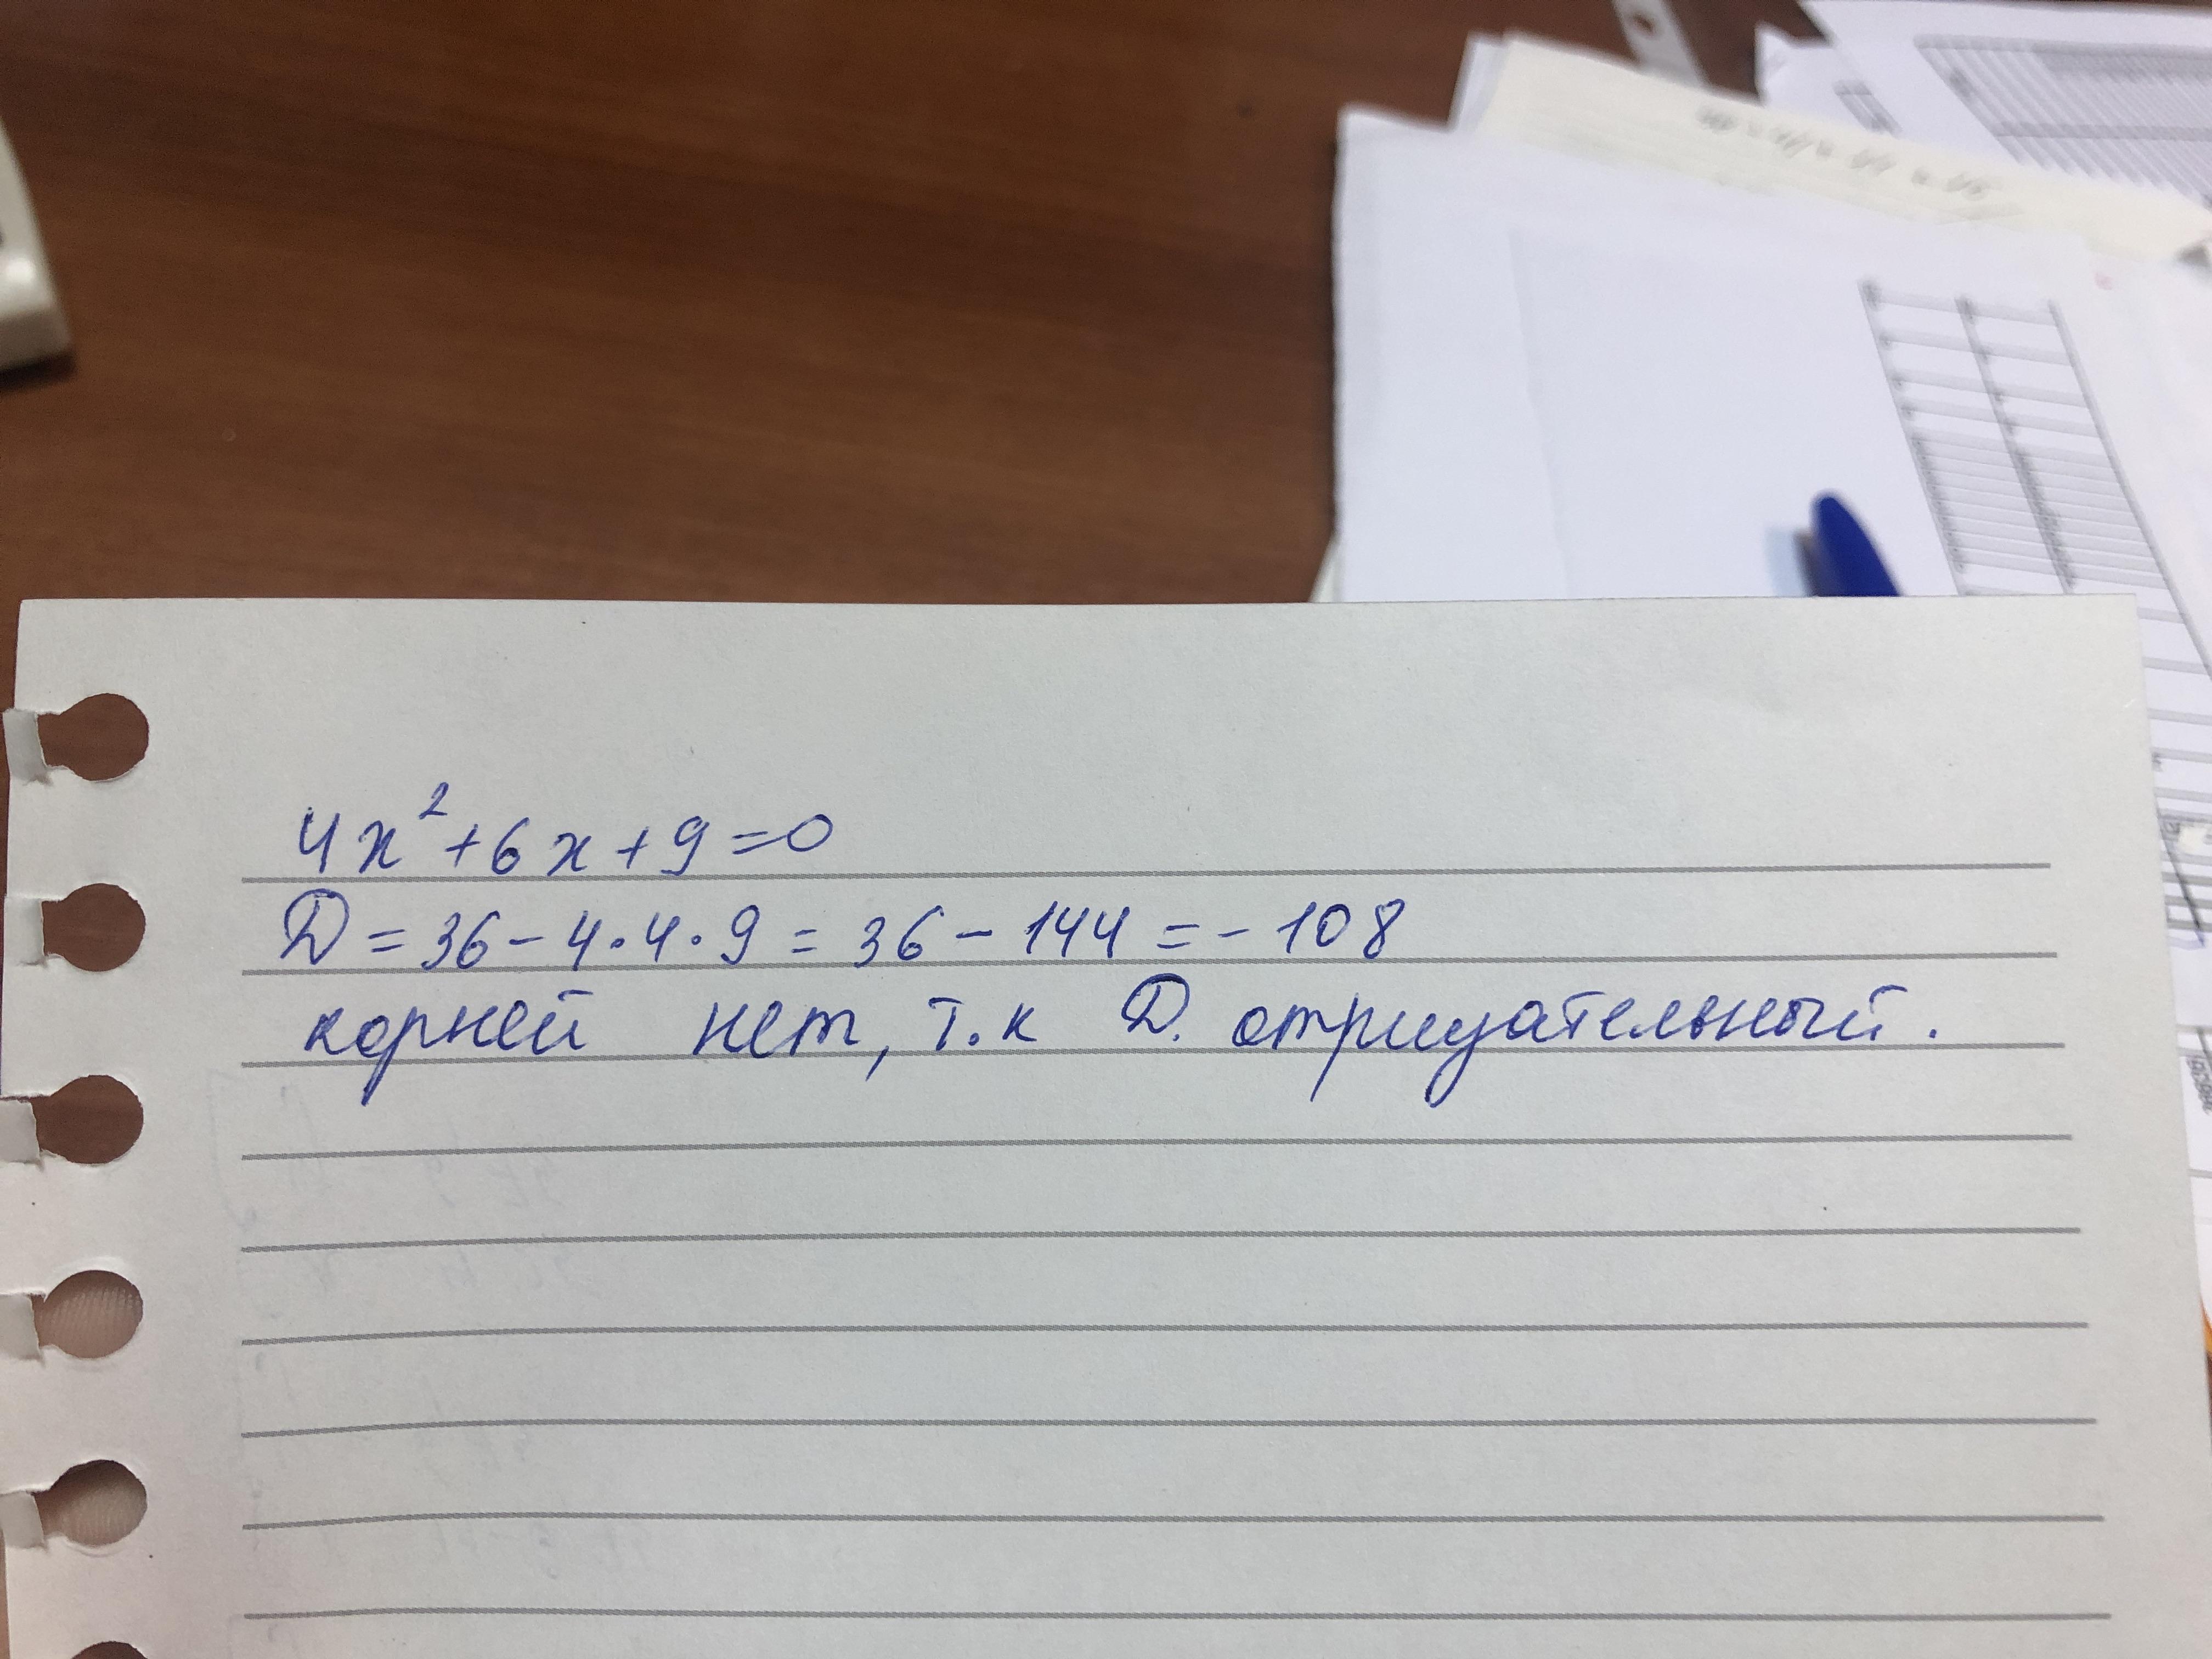 4x²+6x+9=0
D=36-4·4·9=36-144=-108
корней нет, т.к D. отрицательный.